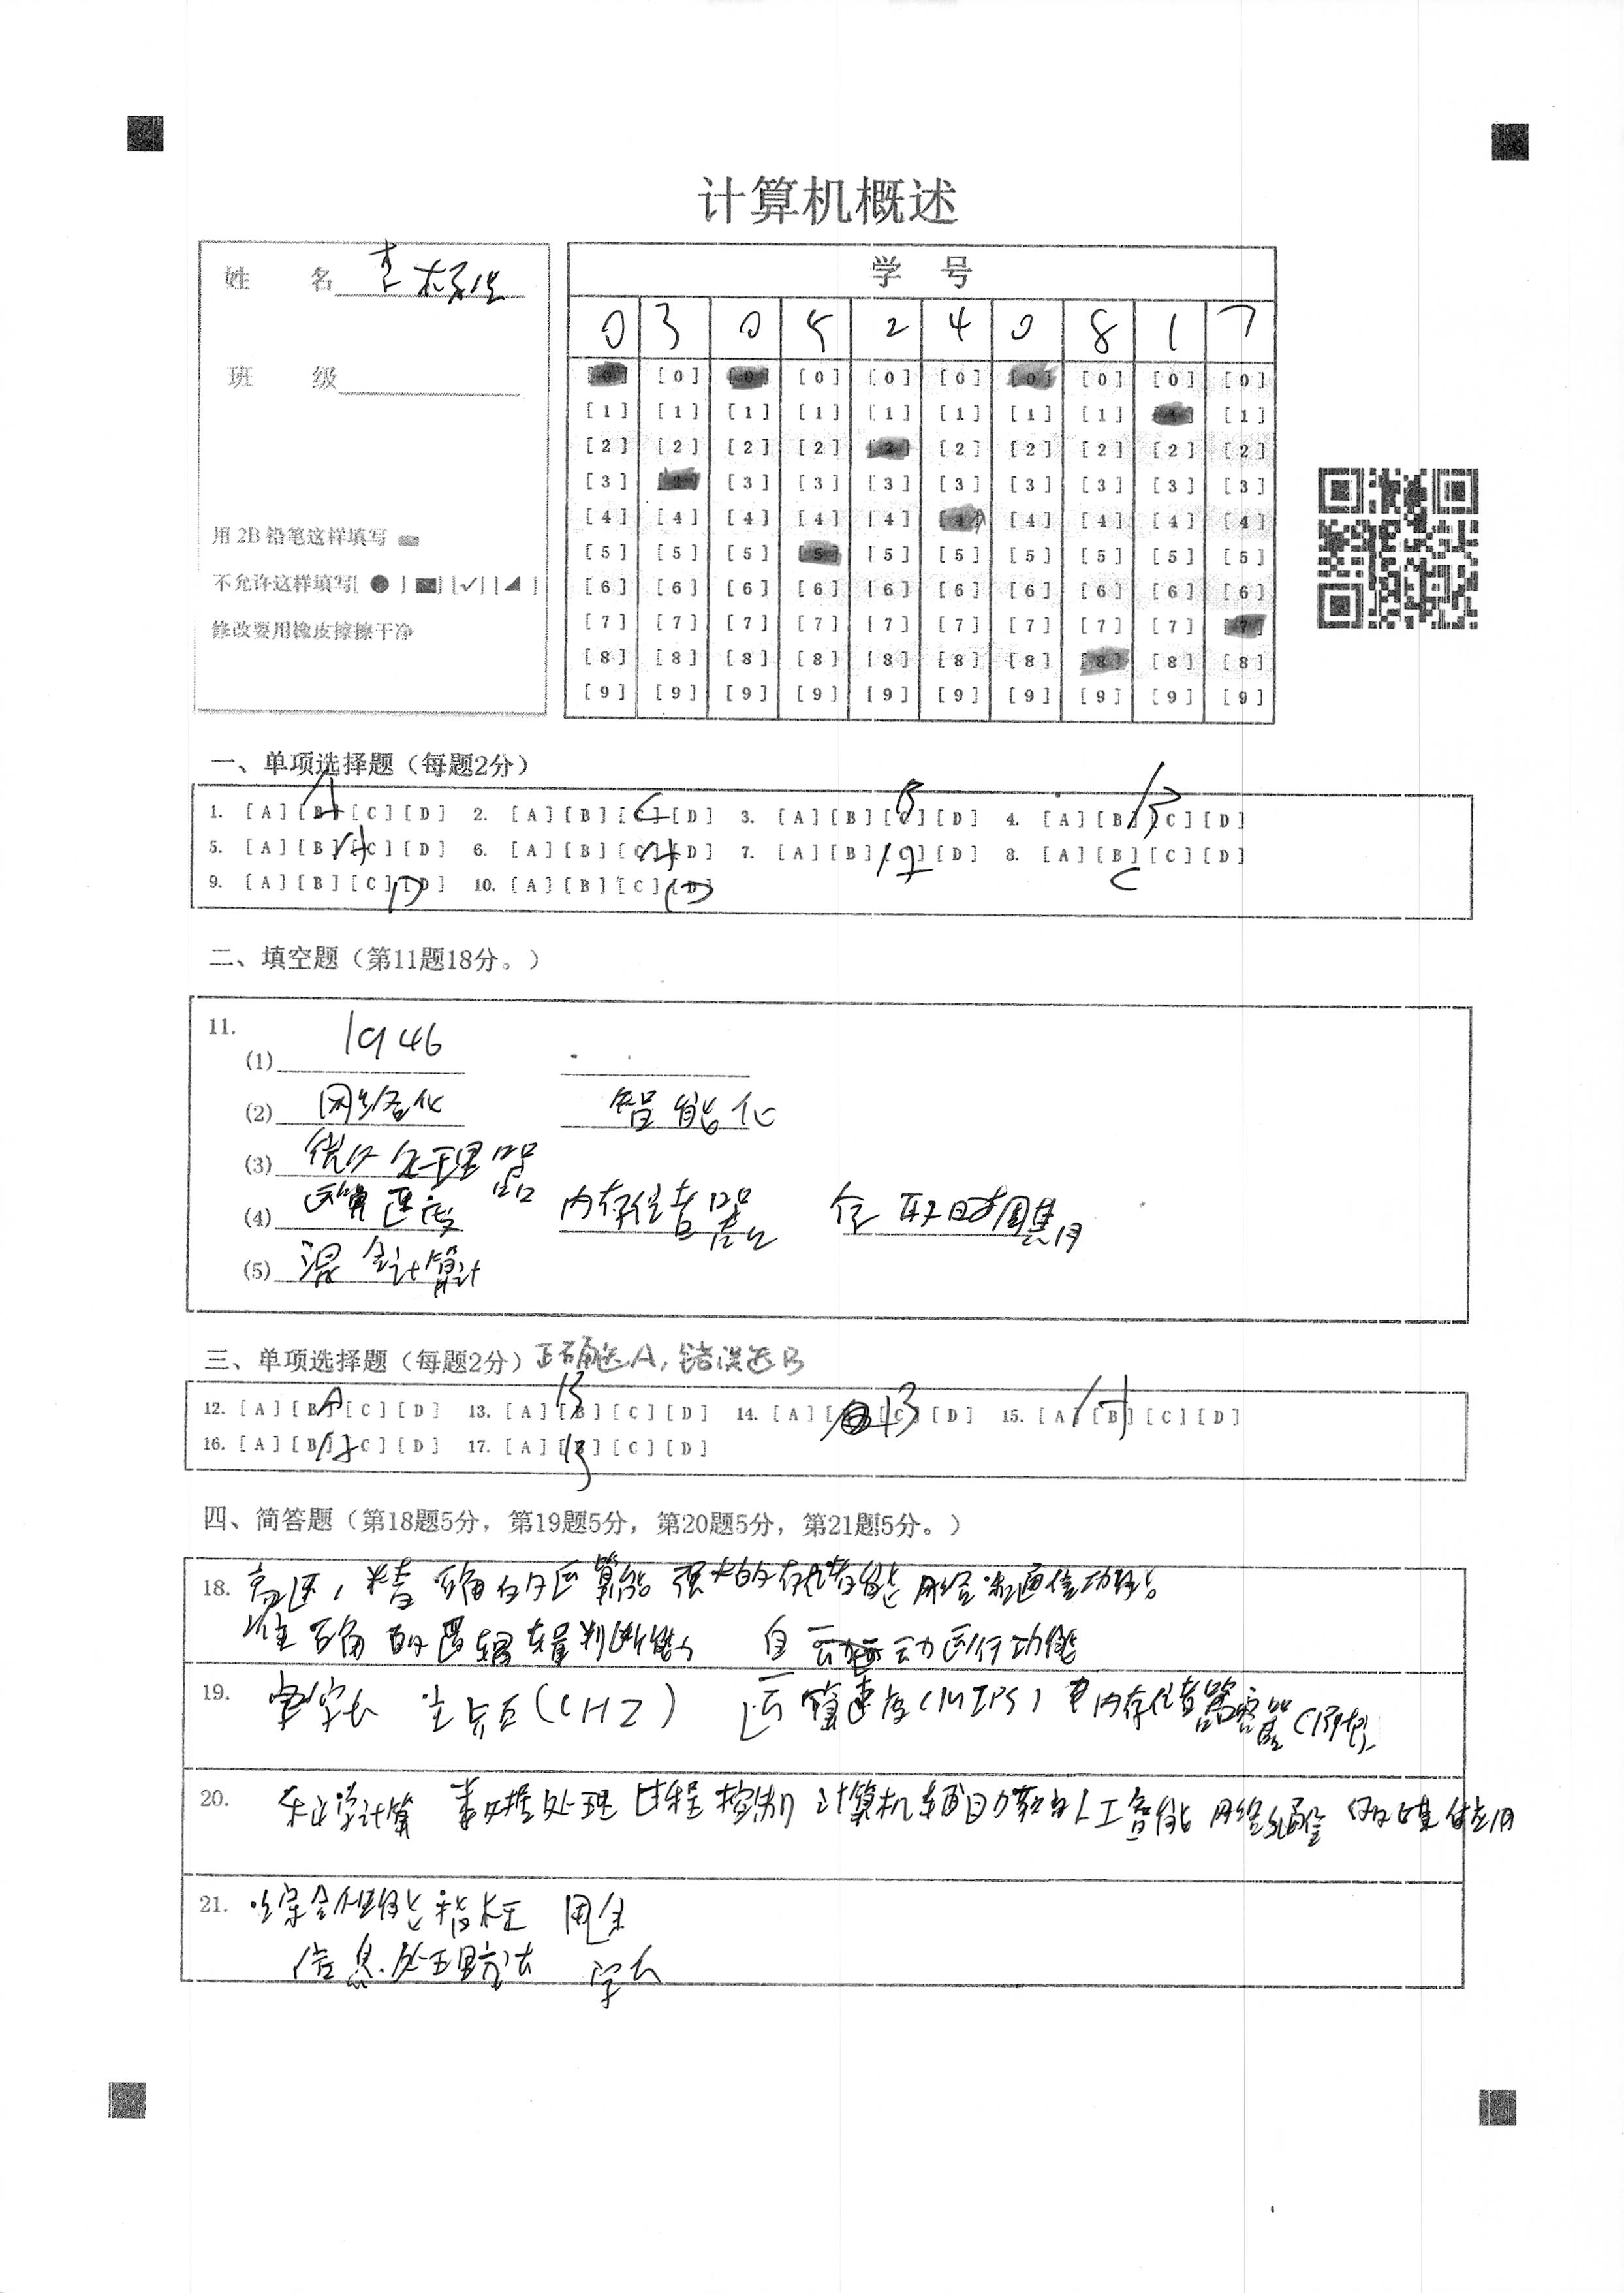 计算机概述
姓 名
学 号
0 3 0 5 2 4 0 8 1 7
班 级
[0] [0] [0] [0] [0] [0] [0] [0] [0] [0]
[1] [1] [1] [1] [1] [1] [1] [1] [1] [1]
[2] [2] [2] [2] [2] [2] [2] [2] [2] [2]
[3] [3] [3] [3] [3] [3] [3] [3] [3] [3]
[4] [4] [4] [4] [4] [4] [4] [4] [4] [4]
[5] [5] [5] [5] [5] [5] [5] [5] [5] [5]
[6] [6] [6] [6] [6] [6] [6] [6] [6] [6]
[7] [7] [7] [7] [7] [7] [7] [7] [7] [7]
[8] [8] [8] [8] [8] [8] [8] [8] [8] [8]
[9] [9] [9] [9] [9] [9] [9] [9] [9] [9]
用 2B 铅笔这样填写
不允许这样填写
修改要用橡皮擦擦干净
一、单项选择题（每题2分）
1. [A][B][C][D] A 2. [A][B][C][D] C 3. [A][B][C][D] B 4. [A][B][C][D] B
5. [A][B][C][D] A 6. [A][B][C][D] A 7. [A][B][C][D] 8. [A][B][C][D] C
9. [A][B][C][D] D 10. [A][B][C][D] D
二、填空题（第11题18分。）
11.
(1) 1946
(2) 网络化 智能化
(3) 微处理器
(4) 运算速度 内存储器 存取周期
(5) 混合计算
三、单项选择题（每题2分）正确选A，错误选B
12. [A][B][C][D] A 13. [A][B][C][D] B 14. [A][B][C][D] B 15. [A][B][C][D] A
16. [A][B][C][D] A 17. [A][B][C][D] B
四、简答题（第18题5分，第19题5分，第20题5分，第21题5分。）
18. 高速，精确的运算能 强大的存储功能 网络通信功能
准确的逻辑判断能力 自动运行功能
19. 字长 主频(GHZ) 运算速度(MIPS) 内存储器容量
20. 科学计算 数据处理 过程控制 计算机辅助 人工智能 网络通信 应用
21. 综合性能指标 用途
信息处理方法 字长